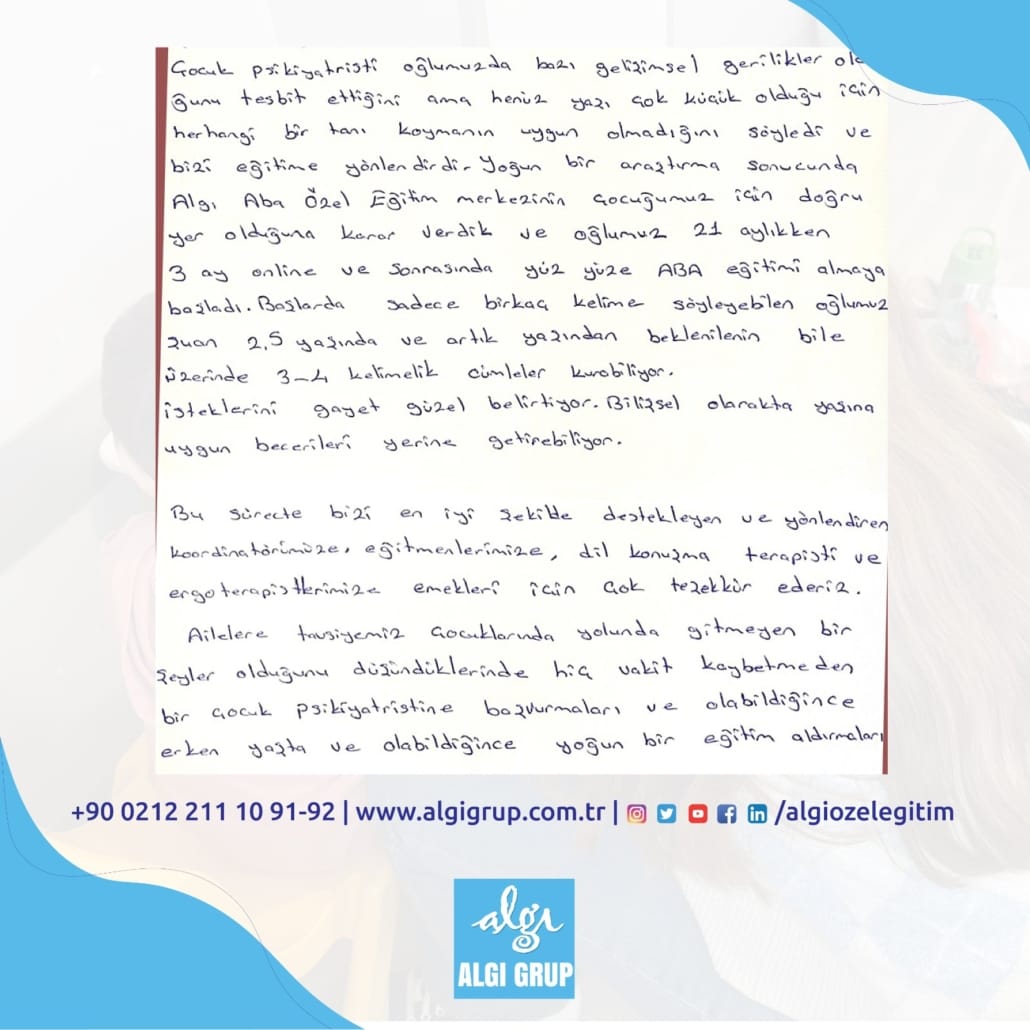 Çocuk psikiyatristi oğlumuzda bazı gelişimsel gerilikler oldu
ğunu tesbit ettiğini ama henüz yaşı çok küçük olduğu için
herhangi bir tanı koymanın uygun olmadığını söyledi ve
bizi eğitime yönlendirdi. Yoğun bir araştırma sonucunda
Algı Aba Özel Eğitim merkezinin çocuğumuz için doğru
yer olduğuna karar verdik ve oğlumuz 21 aylıkken
3 ay online ve sonrasında yüz yüze ABA eğitimi almaya
başladı. Başlarda sadece birkaç kelime söyleyebilen oğlumuz
şuan 2,5 yaşında ve artık yaşından beklenilenin bile
üzerinde 3-4 kelimelik cümleler kurabiliyor.
isteklerini gayet güzel belirtiyor. Bilişsel olarakta yaşına
uygun becerileri yerine getirebiliyor.
Bu süreçte bizi en iyi şekilde destekleyen ve yönlendiren
koordinatörümüze, eğitmenlerimize, dil konuşma terapisti ve
ergoterapistlerimize emekleri için çok teşekkür ederiz.
Ailelere tavsiyemiz çocuklarında yolunda gitmeyen bir
şeyler olduğunu düşündüklerinde hiç vakit kaybetmeden
bir çocuk psikiyatristine başvurmaları ve olabildiğince
erken yaşta ve olabildiğince yoğun bir eğitim aldırmaları
+90 0212 211 10 91-92 | www.algigrup.com.tr | /algiozelegitim
algı
ALGI GRUP